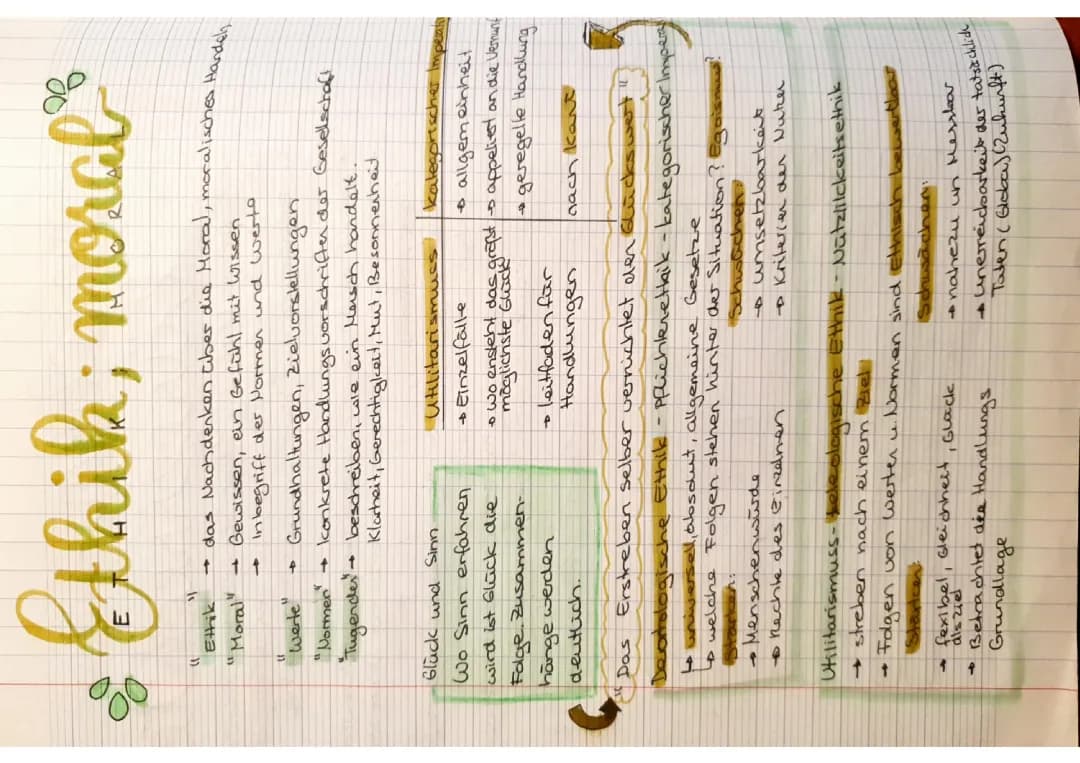 Ethik; moral
ETHIK; MORAL
"Ethik" → das Nachdenken über die Moral, moralisches Handeln
"Moral" → Gewissen, ein Gefühl mit Wissen
→ Inbegriff der Normen und Werte
"Werte" → Grundhaltungen, Zielvorstellungen
"Normen" → konkrete Handlungsvorschriften der Gesellschaft
"Tugenden" → beschreiben, wie ein Mensch handelt.
Klarheit, Gerechtigkeit, Mut, Besonnenheit
Glück und Sinn
Wo Sinn erfahren
wird ist Glück die
Folge. Zusammen-
hänge werden
deutlich.
Utilitarismuss
→ Einzelfälle
→ wo ensteht das größt
möglichste Glück
→ Leitfaden für
Handlungen
kategorischer Imperativ
→ allgemeinheit
→ appeliert an die Vernunf
→ geregelte Handlung
nach Kant
"Das Erstreben selber vernichtet den Glückswert"
Deontologische Ethik - pflichtenethik - kategorischer Impera
↳ universel, absolut, allgemeine Gesetze
↳ welche Folgen stehen hinter der Situation? Egoismus?
Stärken:
→ Menschenwürde
→ Rechte des Einzelnen
Schwächen:
→ Umsetzbarkeit
→ Kriterien der Nutzen
Utilitarismuss - teleologische Ethik - Nützlickeitsethik
→ streben nach einem Ziel
→ Folgen von Werten u. Normen sind Ethisch bewertbar
Stärken:
→ flexibel, Gleichheit, Glück
als Ziel
→ Betrachtet die Handlungs
Grundlage
Schwächen:
→ nahezu un Messbar
→ Unerreichbarkeit der tatsächlich
Taten (Glokas) (Zukunft)